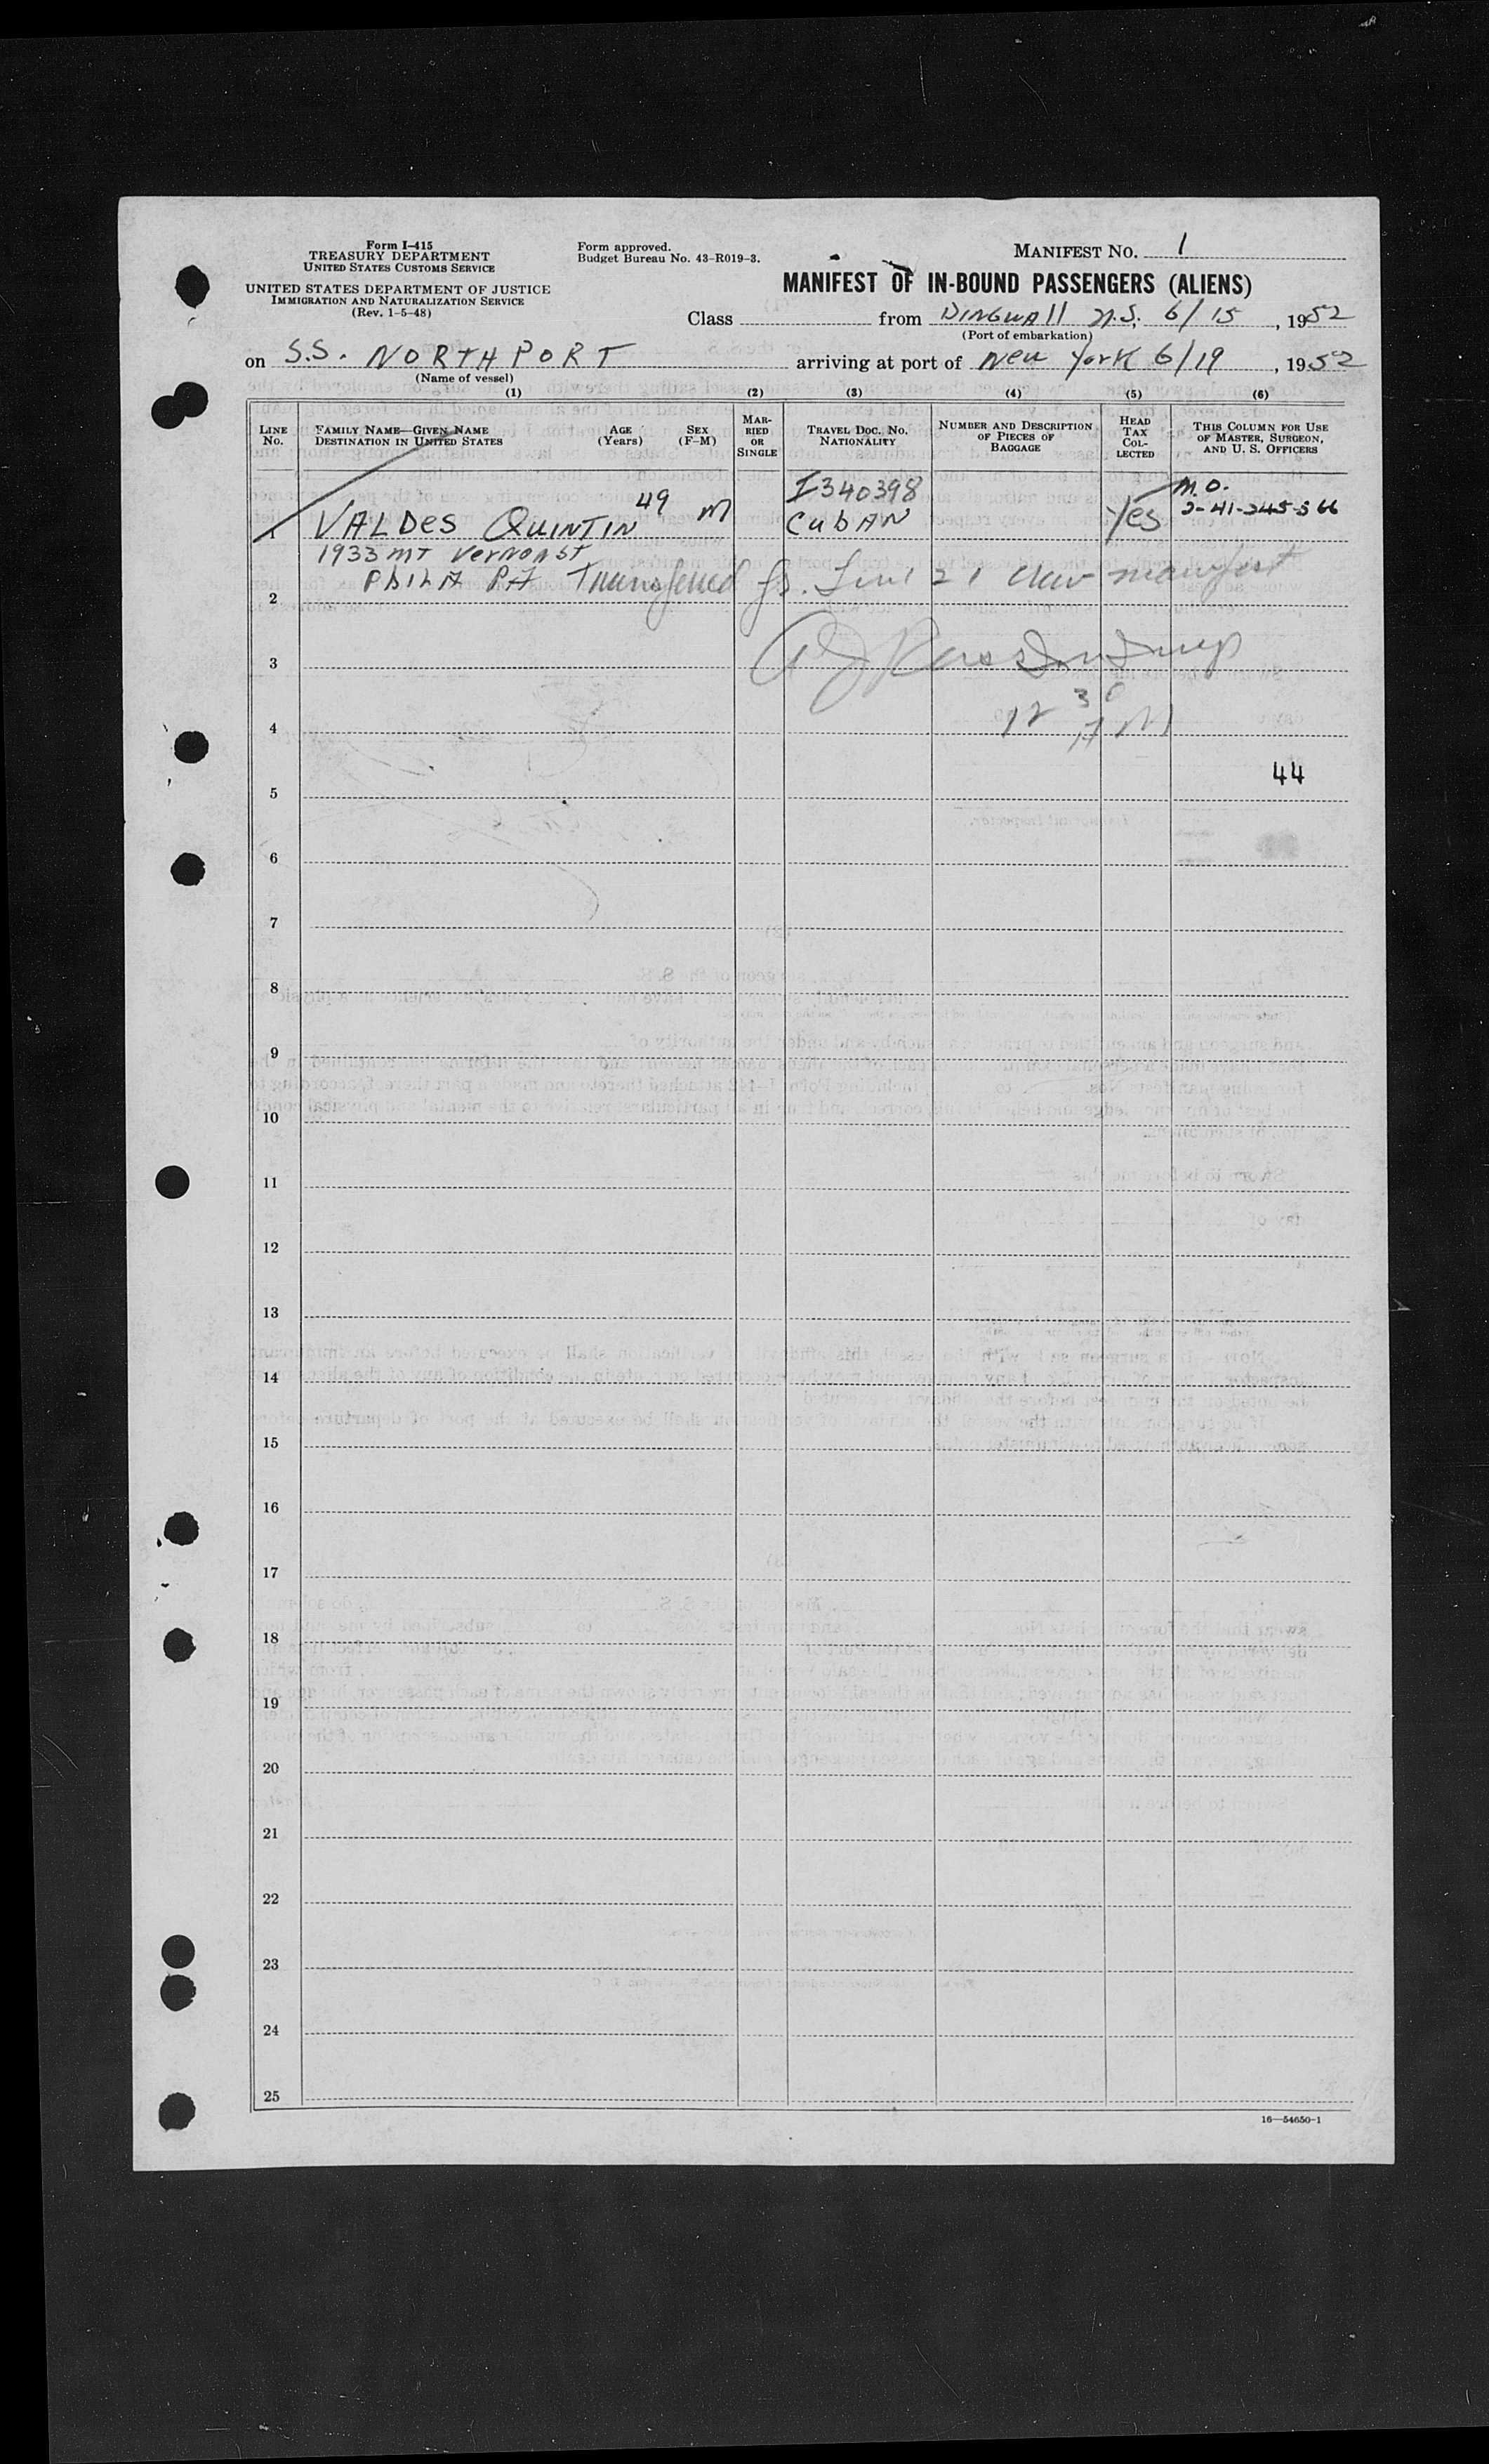 Form I-415
TREASURY DEPARTMENT
UNITED STATES CUSTOMS SERVICE
UNITED STATES DEPARTMENT OF JUSTICE
IMMIGRATION AND NATURALIZATION SERVICE
(Rev. 1-5-48)
Form approved.
Budget Bureau No. 43-R019-3.
MANIFEST NO. 1
MANIFEST OF IN-BOUND PASSENGERS (ALIENS)
Class from DINGWALL N.S. 6/15, 1952
(Port of embarkation)
on S.S. NORTHPORT arriving at port of New York 6/19, 1952
(Name of vessel)
(1) (2) (3) (4) (5) (6)
LINE NO.
FAMILY NAME—GIVEN NAME
DESTINATION IN UNITED STATES
AGE (Years)
SEX (F-M)
MARRIED OR SINGLE
TRAVEL DOC. NO.
NATIONALITY
NUMBER AND DESCRIPTION OF PIECES OF BAGGAGE
HEAD TAX COLLECTED
THIS COLUMN FOR USE OF MASTER, SURGEON, AND U. S. OFFICERS
1 VALDES QUINTIN 49 M I340398 CUBAN Yes M.O. 2-41-245-566
1933 MT VERNON ST
PHILA PA Transferred fr. Line 21 crew manifest
2
3
12 30 AM
4
44
5
6
7
8
9
10
11
12
13
14
15
16
17
18
19
20
21
22
23
24
25
16—54650-1